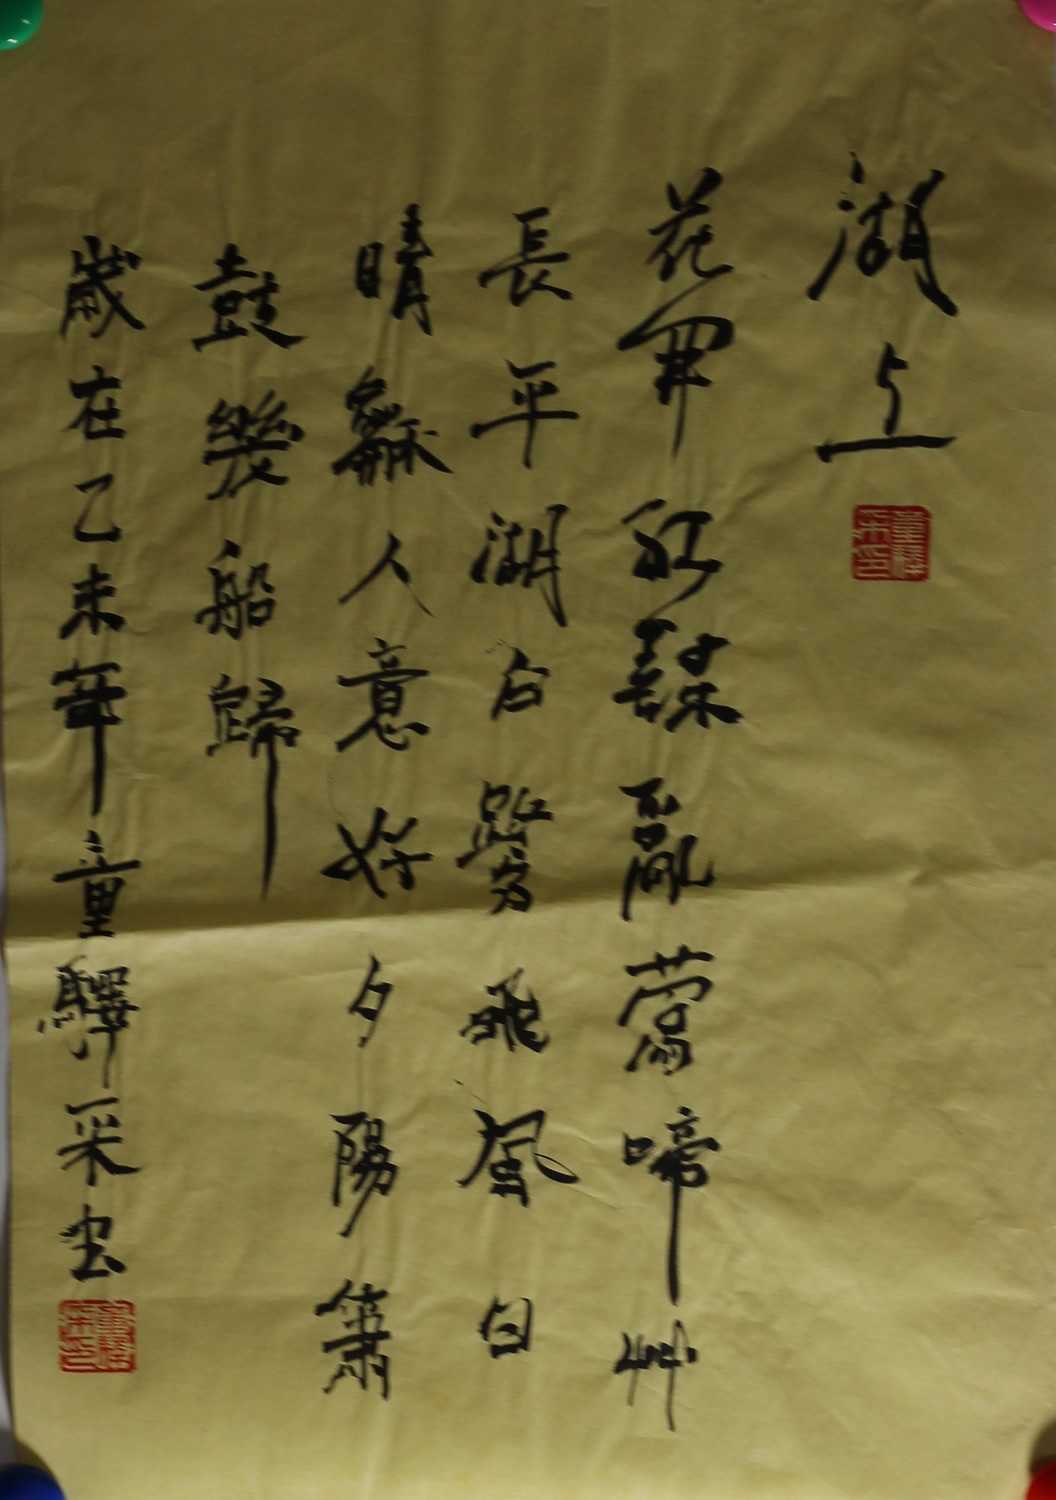 湖上
花開紅樹亂鶯啼艸
長平湖白鷺飛風日
晴龢人意好夕陽簫
鼓幾船歸
歲在乙未年童驛采書